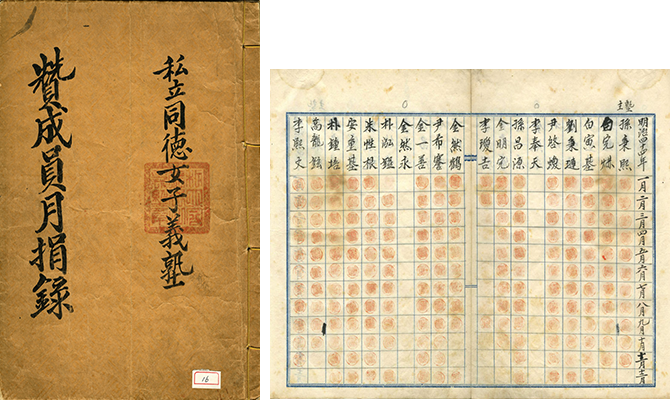 私立同德女子義塾
贊成員月捐錄
16
明治四四年 一月 二月 三月 四月 五月 六月 七月 八月 九月 十月 十一月 十二月
孫秉熙
白完爀
白寅基
劉秉璉
尹啓煥
李奉天
孫昌源
金明完
李瓊吉
金然鶴
尹希
金一善
金然永
朴泓鎰
朱性根
安重基
朴鍾培
高龍鉉
李熙文